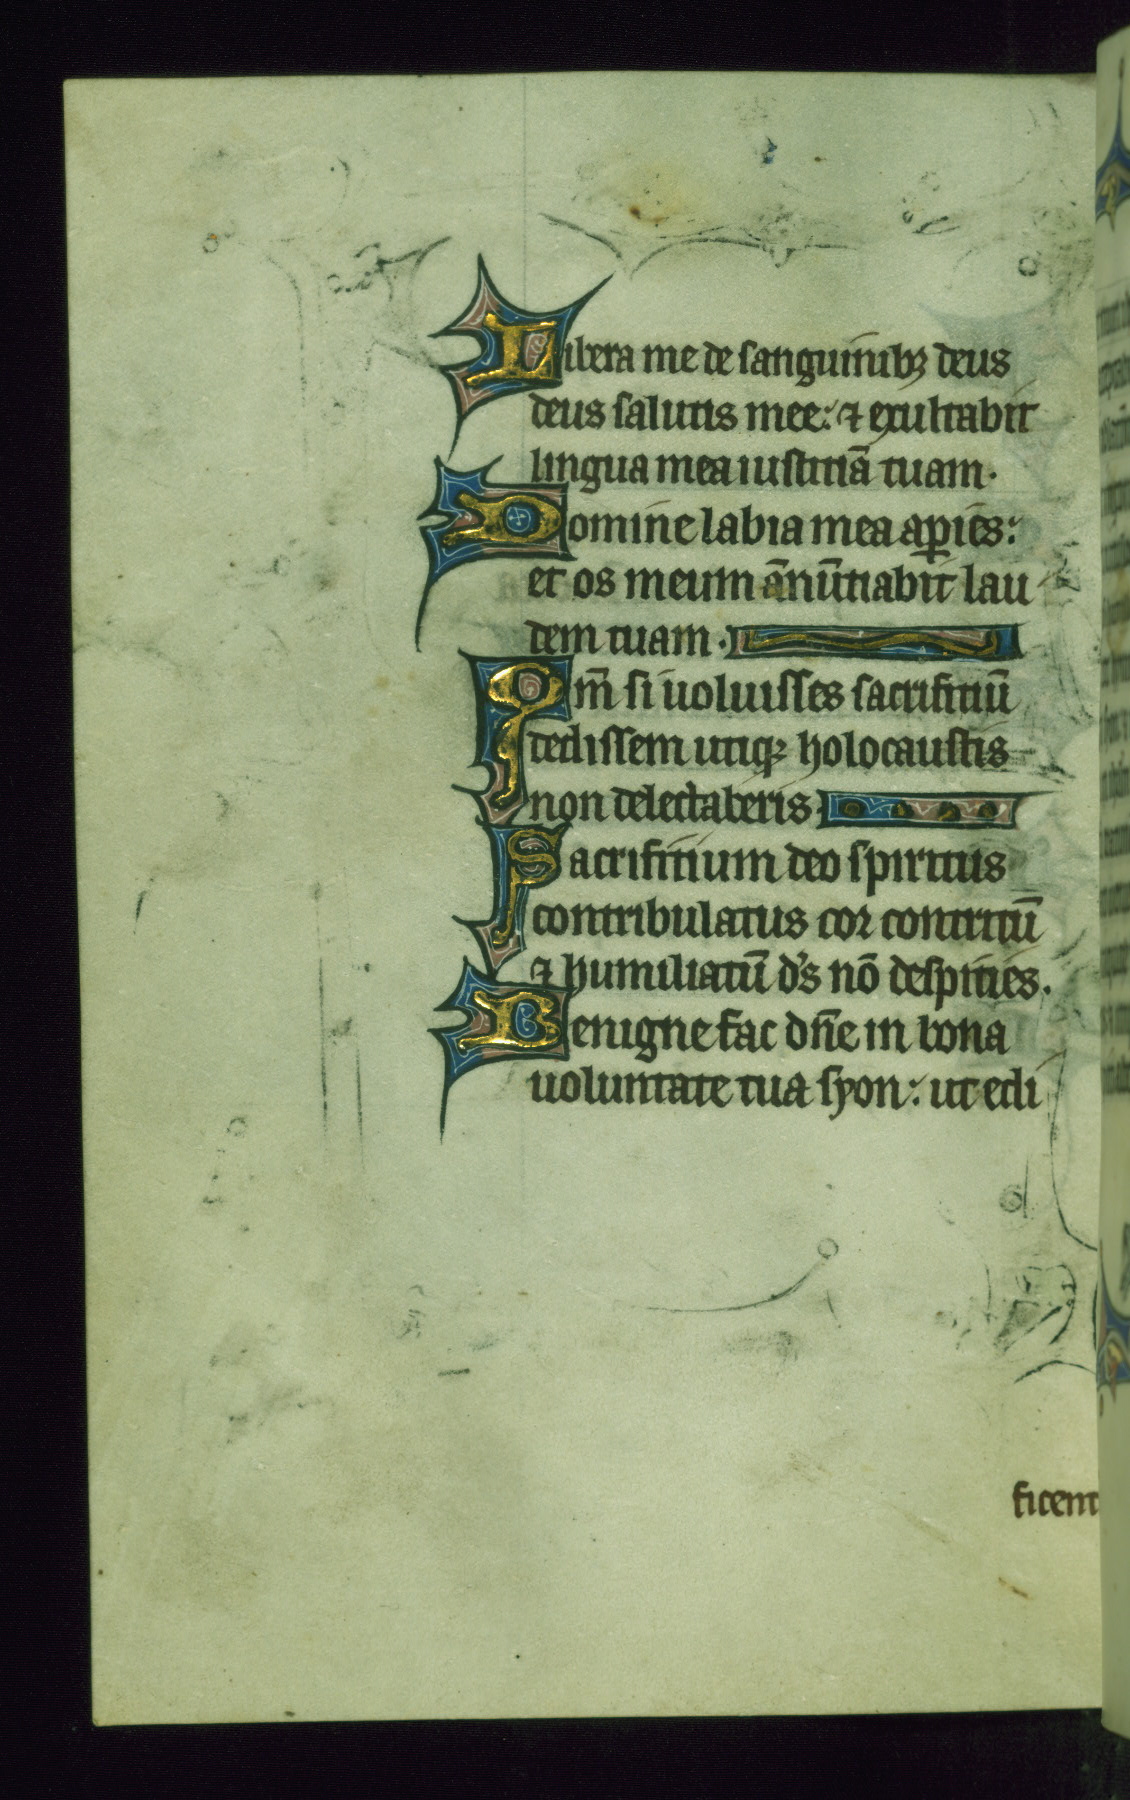 Libera me de sanguinibꝫ deus
deus salutis mee: ⁊ exultabit
lingua mea iustitiā tuam.
Domine labia mea aꝑies:
et os meum ānūtiabit lau
dem tuam.
Qm̄ si uoluisses sacrifitiū
dedissem utiqꝫ holocaustis
non delectaberis.
Sacrifitium deo spiritus
contribulatus cor contritū
⁊ humiliatū d's nō despities.
Benigne fac dn̄e in bona
uoluntate tua syon: ut edi
ficent